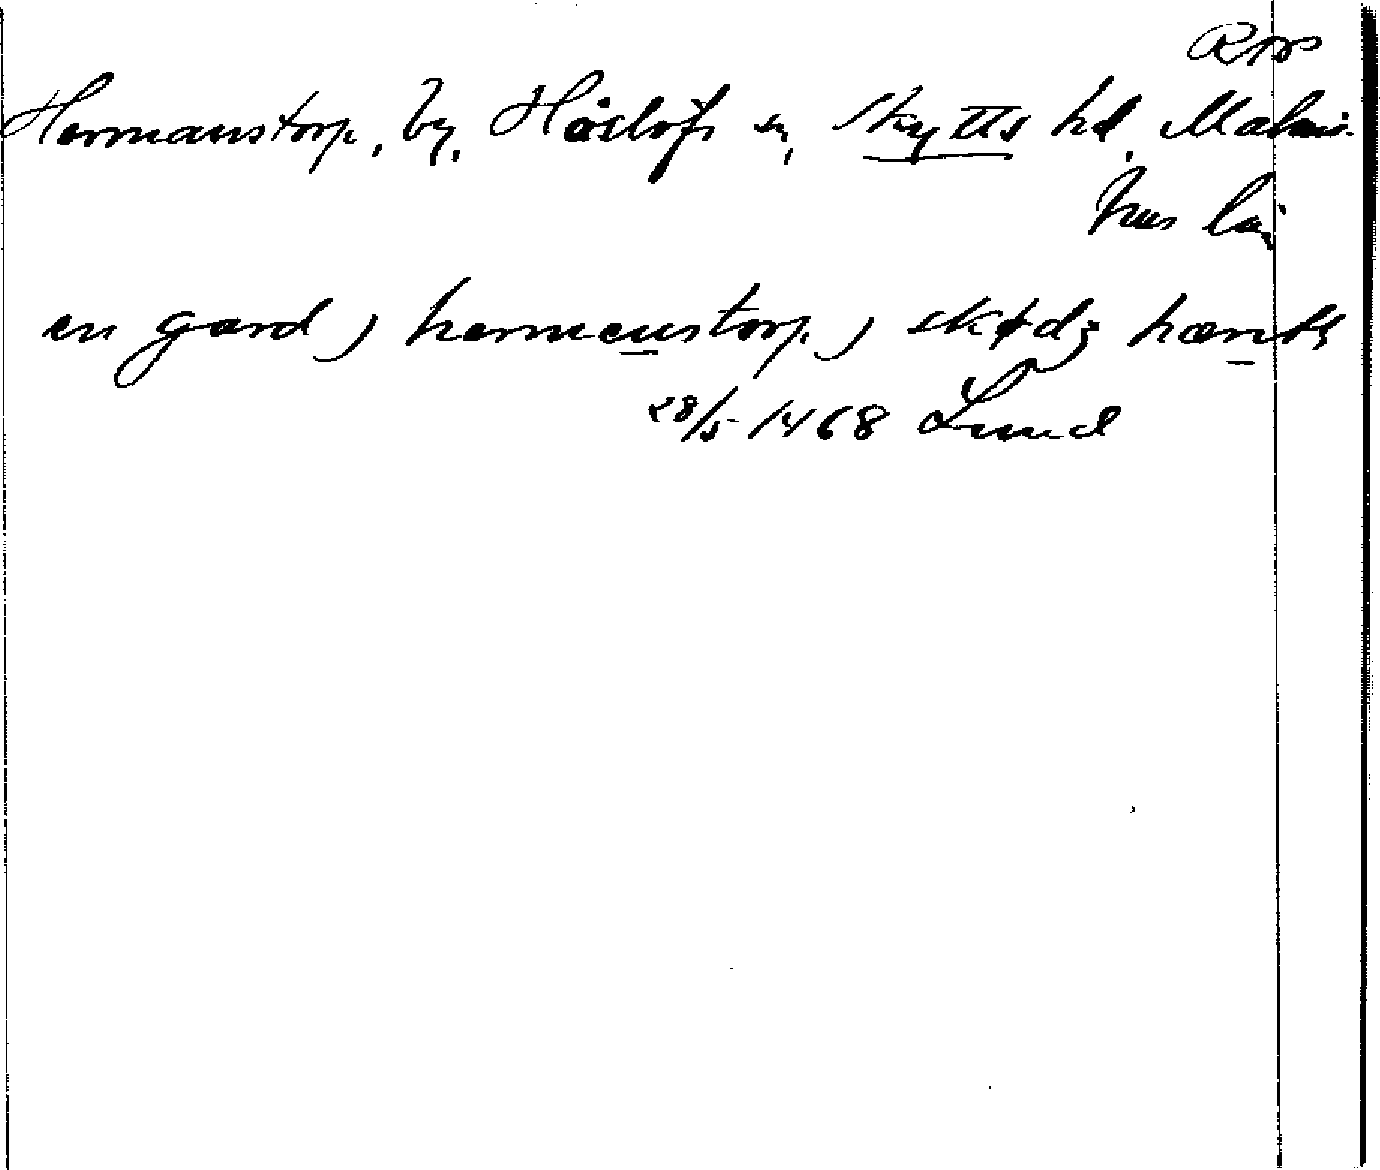 Hermanstorp, by, Håslöfs sn, Skytts hd, Malmö-
hus län
en gard j hermenstorp j skødz hæreth
28/5 1468 Lund